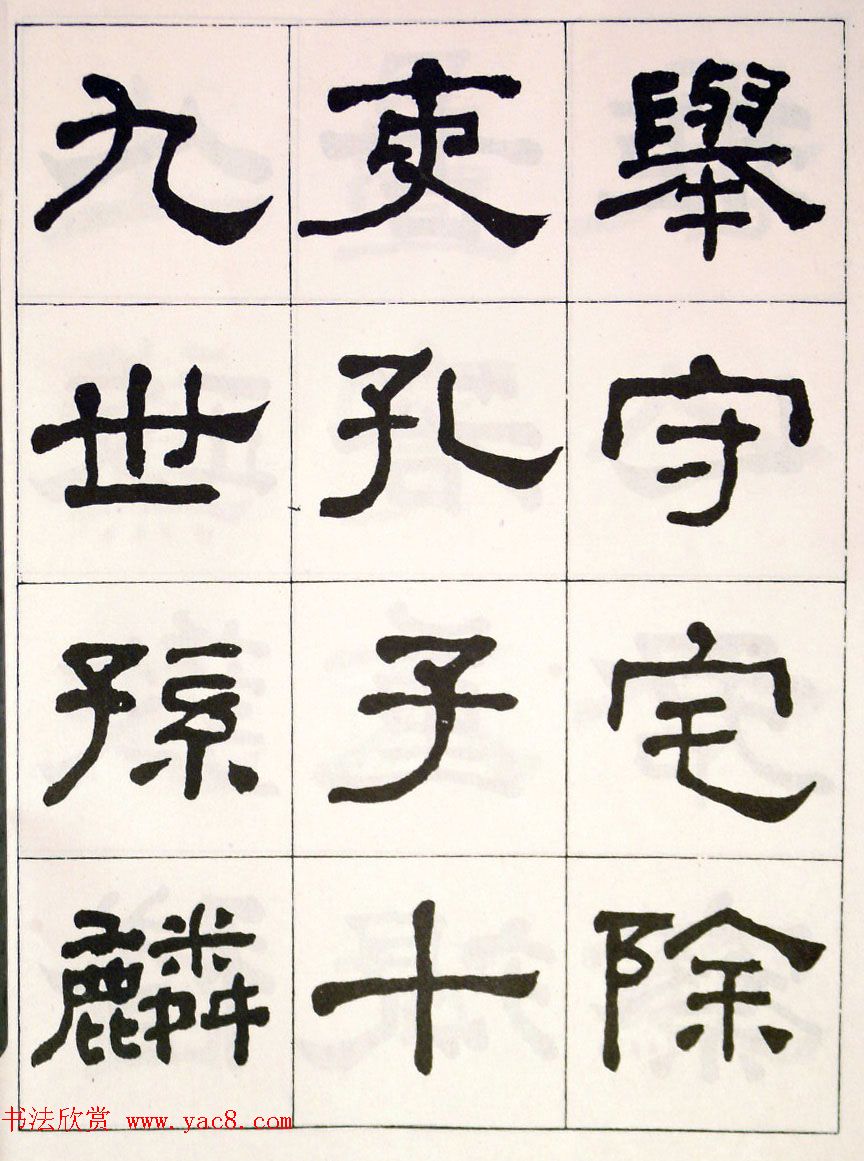 舉守宅除
吏孔子十
九世孫麟
书法欣赏 www.yac8.com